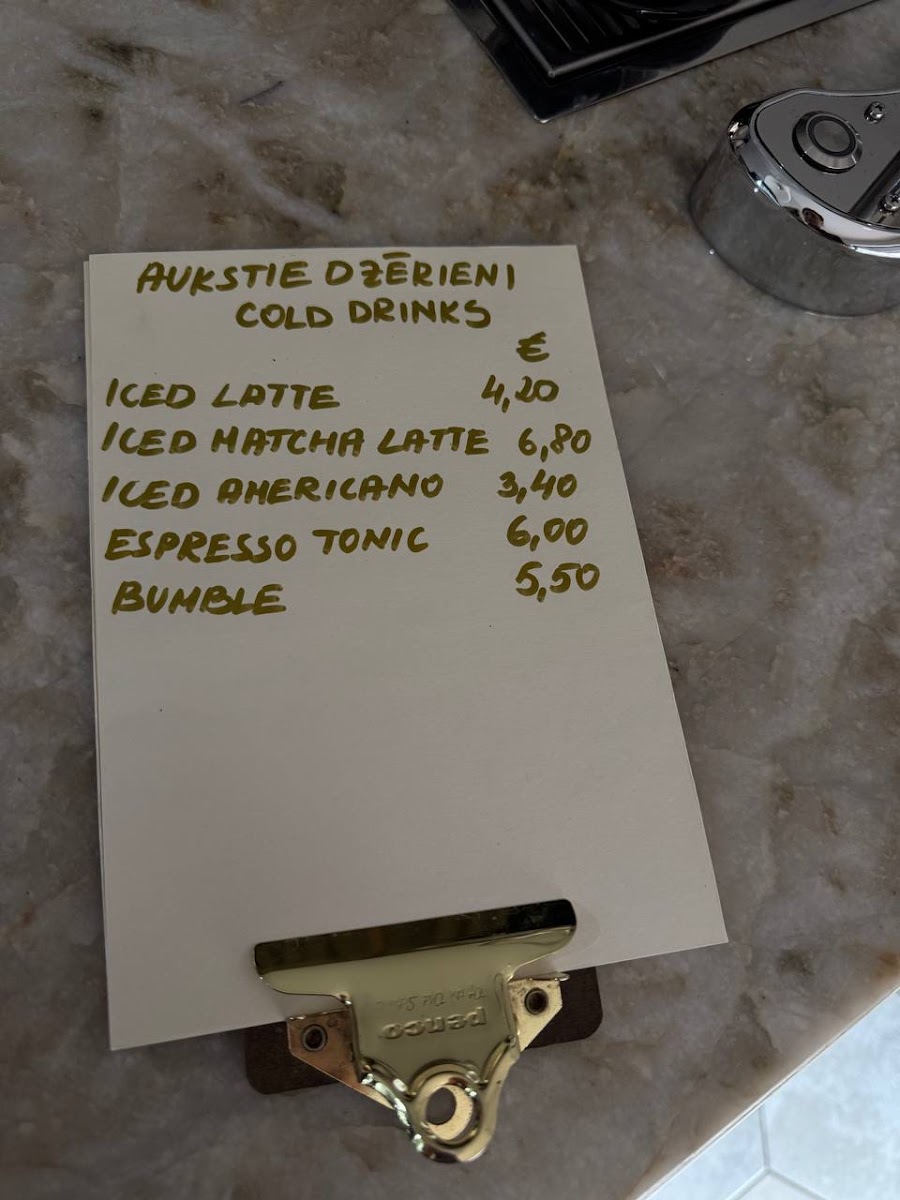 AUKSTIE DZĒRIENI
COLD DRINKS
€
ICED LATTE 4,20
ICED MATCHA LATTE 6,80
ICED AMERICANO 3,40
ESPRESSO TONIC 6,00
BUMBLE 5,50
penco